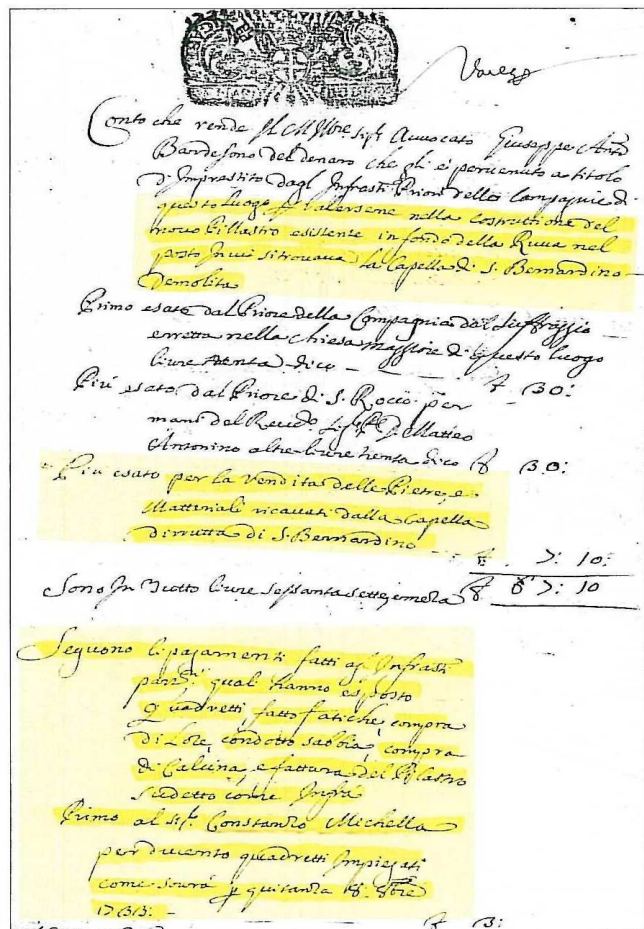 Conto che rende Il Mlto Ill.re Sig.r Avvocato Giuseppe Ant.o
Bandesono del denaro che gl' è pervenuto a titolo
d'Imprestito dagl' Infrasti Priori delle Compagnie di
questo luogo p valersene nella costruttione del
novo Pillastro esistente in fondo della Ruva nel
posto In cui si trovava la Capella di S. Bernardino
demolita
Primo esatte dal Priore della Compagnia dal Suffraggio
erretta nella chiesa maggiore di questo luogo
livre trenta dico 30:
Più esato dal Priore di S. Rocco per
mani del Rev.do Sig.r D. Matteo
Antonino altre livre trenta dico 30:
Più esato per la vendita delle Pietre, e
Matteriali ricavati dalla Capella
dirrutta di S. Bernardino
7: 10:
Sono In Tutto livre sessanta sette, e meza 67: 10
Seguono li pagamenti fatti agl' Infrasti
quali hanno esposto
quadretti, fatto fatiche, compra
di Lose, condotto sabbia, compra
di Calcina, e fattura del Pilastro
sudetto come Infra
Primo al Sig.r Constanzo Michella
per ducento quadretti Impiegati
come sovra p quitanza 8: 8bre
1733: -
3: